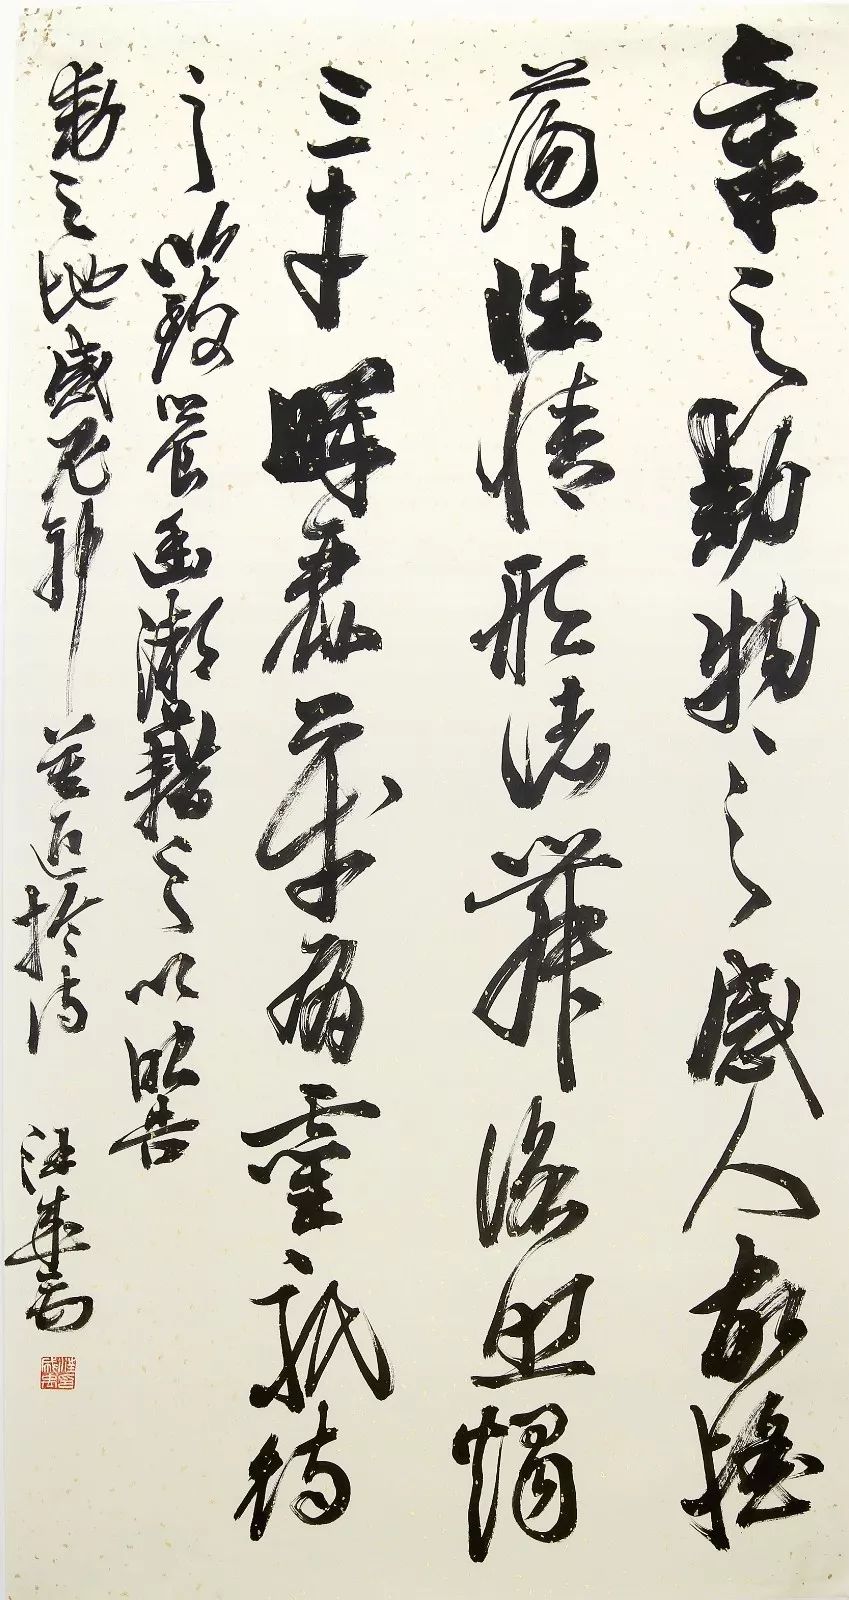 氣之動物々之感人故搖
蕩性情形諸舞詠照燭
三才暉麗萬有靈祇待
之以致饗幽微藉之以昭告
動天地感鬼神莫近於詩 汪